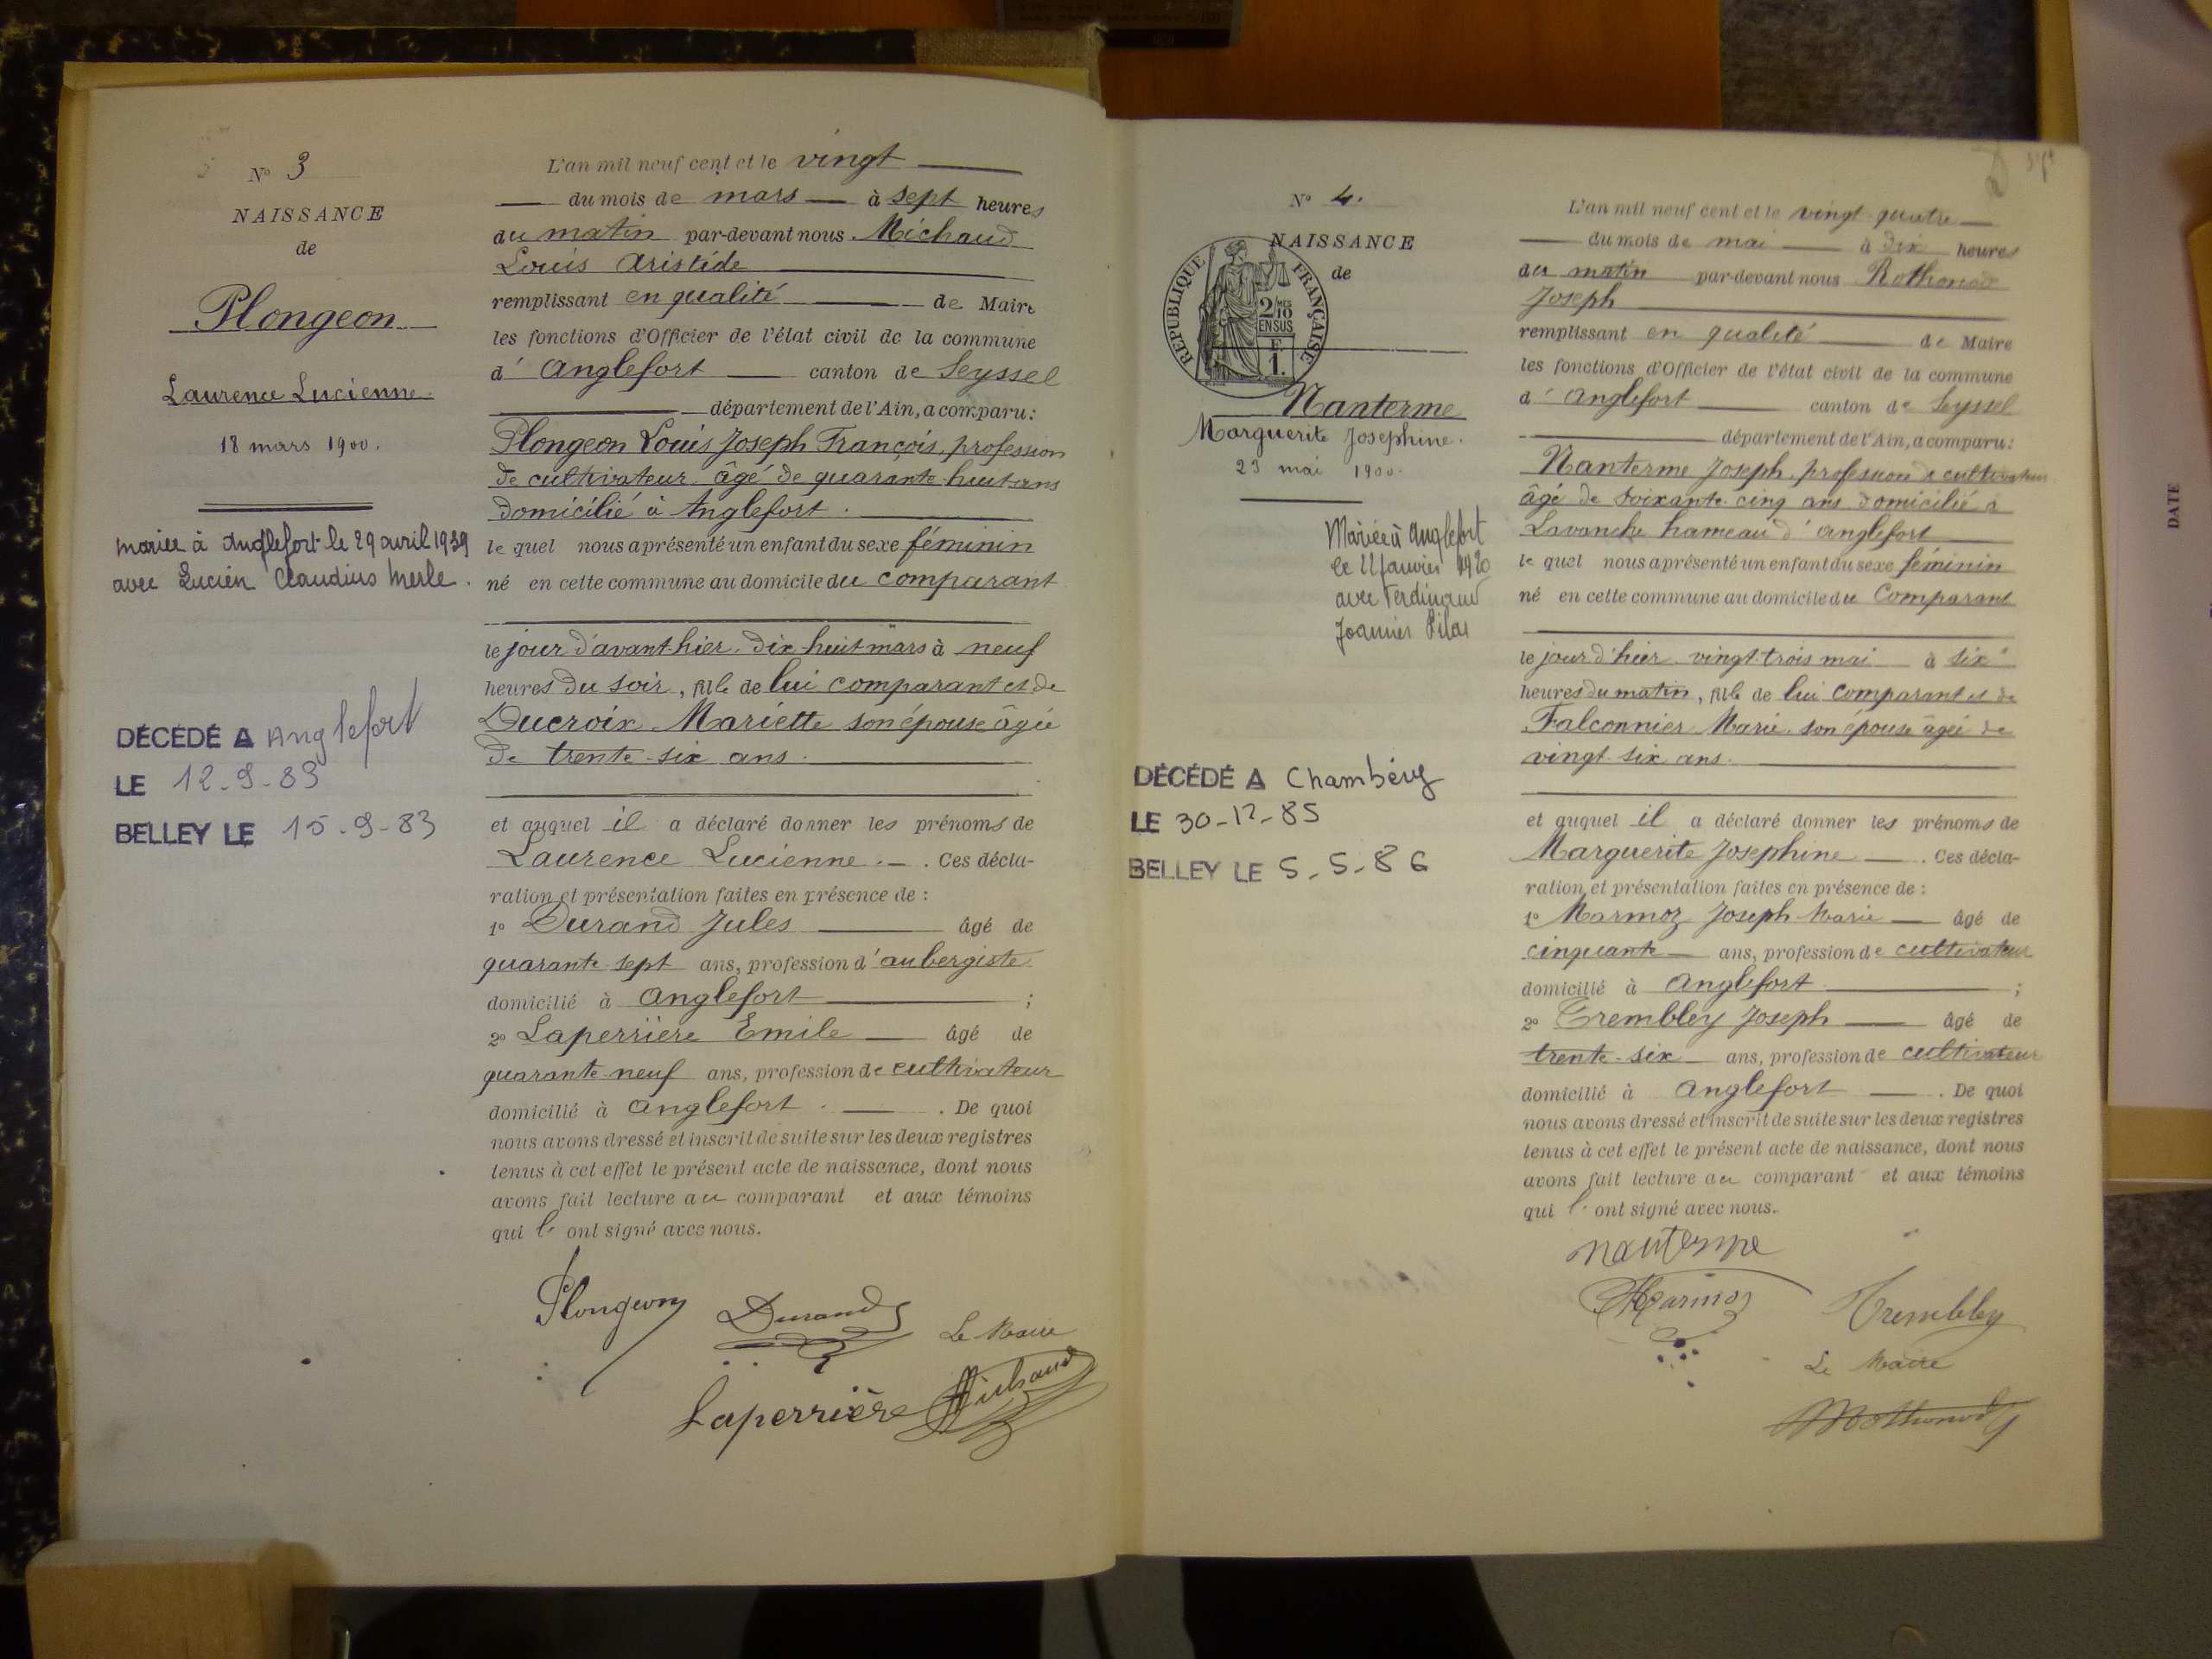 N° 3
NAISSANCE
de
Plongeon
Laurence Lucienne.
18 mars 1900.
mariée à Anglefort le 29 avril 1939
avec Lucien Claudius Merle.
DÉCÉDÉ A Anglefort
LE 12-9-83
BELLEY LE 15-9-83
L'an mil neuf cent et le vingt
du mois de mars à sept heures
du matin par-devant nous Michaud
Louis Aristide
remplissant en qualité de Maire
les fonctions d'Officier de l'état civil de la commune
d' Anglefort canton de Seyssel
département de l'Ain, a comparu:
Plongeon Louis Joseph François, profession
de cultivateur âgé de quarante-huit ans
domicilié à Anglefort.
le quel nous a présenté un enfant du sexe féminin
né en cette commune au domicile du comparant
le jour d'avant-hier dix-huit mars à neuf
heures du soir, fille de lui comparant et de
Ducroix Mariette son épouse âgée
de trente-six ans.
et auquel il a déclaré donner les prénoms de
Laurence Lucienne. Ces décla-
ration et présentation faites en présence de :
1° Durand Jules âgé de
quarante-sept ans, profession d'aubergiste
domicilié à Anglefort ;
2° Laperrière Emile âgé de
quarante-neuf ans, profession de cultivateur
domicilié à Anglefort. De quoi
nous avons dressé et inscrit de suite sur les deux registres
tenus à cet effet le présent acte de naissance, dont nous
avons fait lecture au comparant et aux témoins
qui l' ont signé avec nous.
Plongeon Durand Le Maire
Laperrière Michaud
N° 4.
NAISSANCE
de
RÉPUBLIQUE FRANÇAISE
2/10 MES
EN SUS
F.
1.
Nanterme
Marguerite Josephine.
23 mai 1900.
Mariée à Anglefort
le 22 janvier 1920
avec Ferdinand
DÉCÉDÉ A Chambéry
LE 30-12-85
BELLEY LE 5-5-86
L'an mil neuf cent et le vingt-quatre
du mois de mai à dix heures
du matin par-devant nous Rothonod
Joseph
remplissant en qualité de Maire
les fonctions d'Officier de l'état civil de la commune
d' Anglefort canton de Seyssel
département de l'Ain, a comparu:
Nanterme Joseph, profession de cultivateur
âgé de soixante-cinq ans domicilié à
Lavanche hameau d'Anglefort
le quel nous a présenté un enfant du sexe féminin
né en cette commune au domicile du Comparant
le jour d'hier vingt-trois mai à six
heures du matin, fille de lui comparant et de
Falconnier Marie son épouse âgée de
vingt-six ans.
et auquel il a déclaré donner les prénoms de
Marguerite Josephine. Ces décla-
ration et présentation faites en présence de :
1° Marmoz Joseph-Marie âgé de
cinquante ans, profession de cultivateur
domicilié à Anglefort ;
2° Trembley Joseph âgé de
trente-six ans, profession de cultivateur
domicilié à Anglefort. De quoi
nous avons dressé et inscrit de suite sur les deux registres
tenus à cet effet le présent acte de naissance, dont nous
avons fait lecture au comparant et aux témoins
qui l' ont signé avec nous.
Nanterme
Marmoz Trembley
Le Maire
Rothonod
DATE